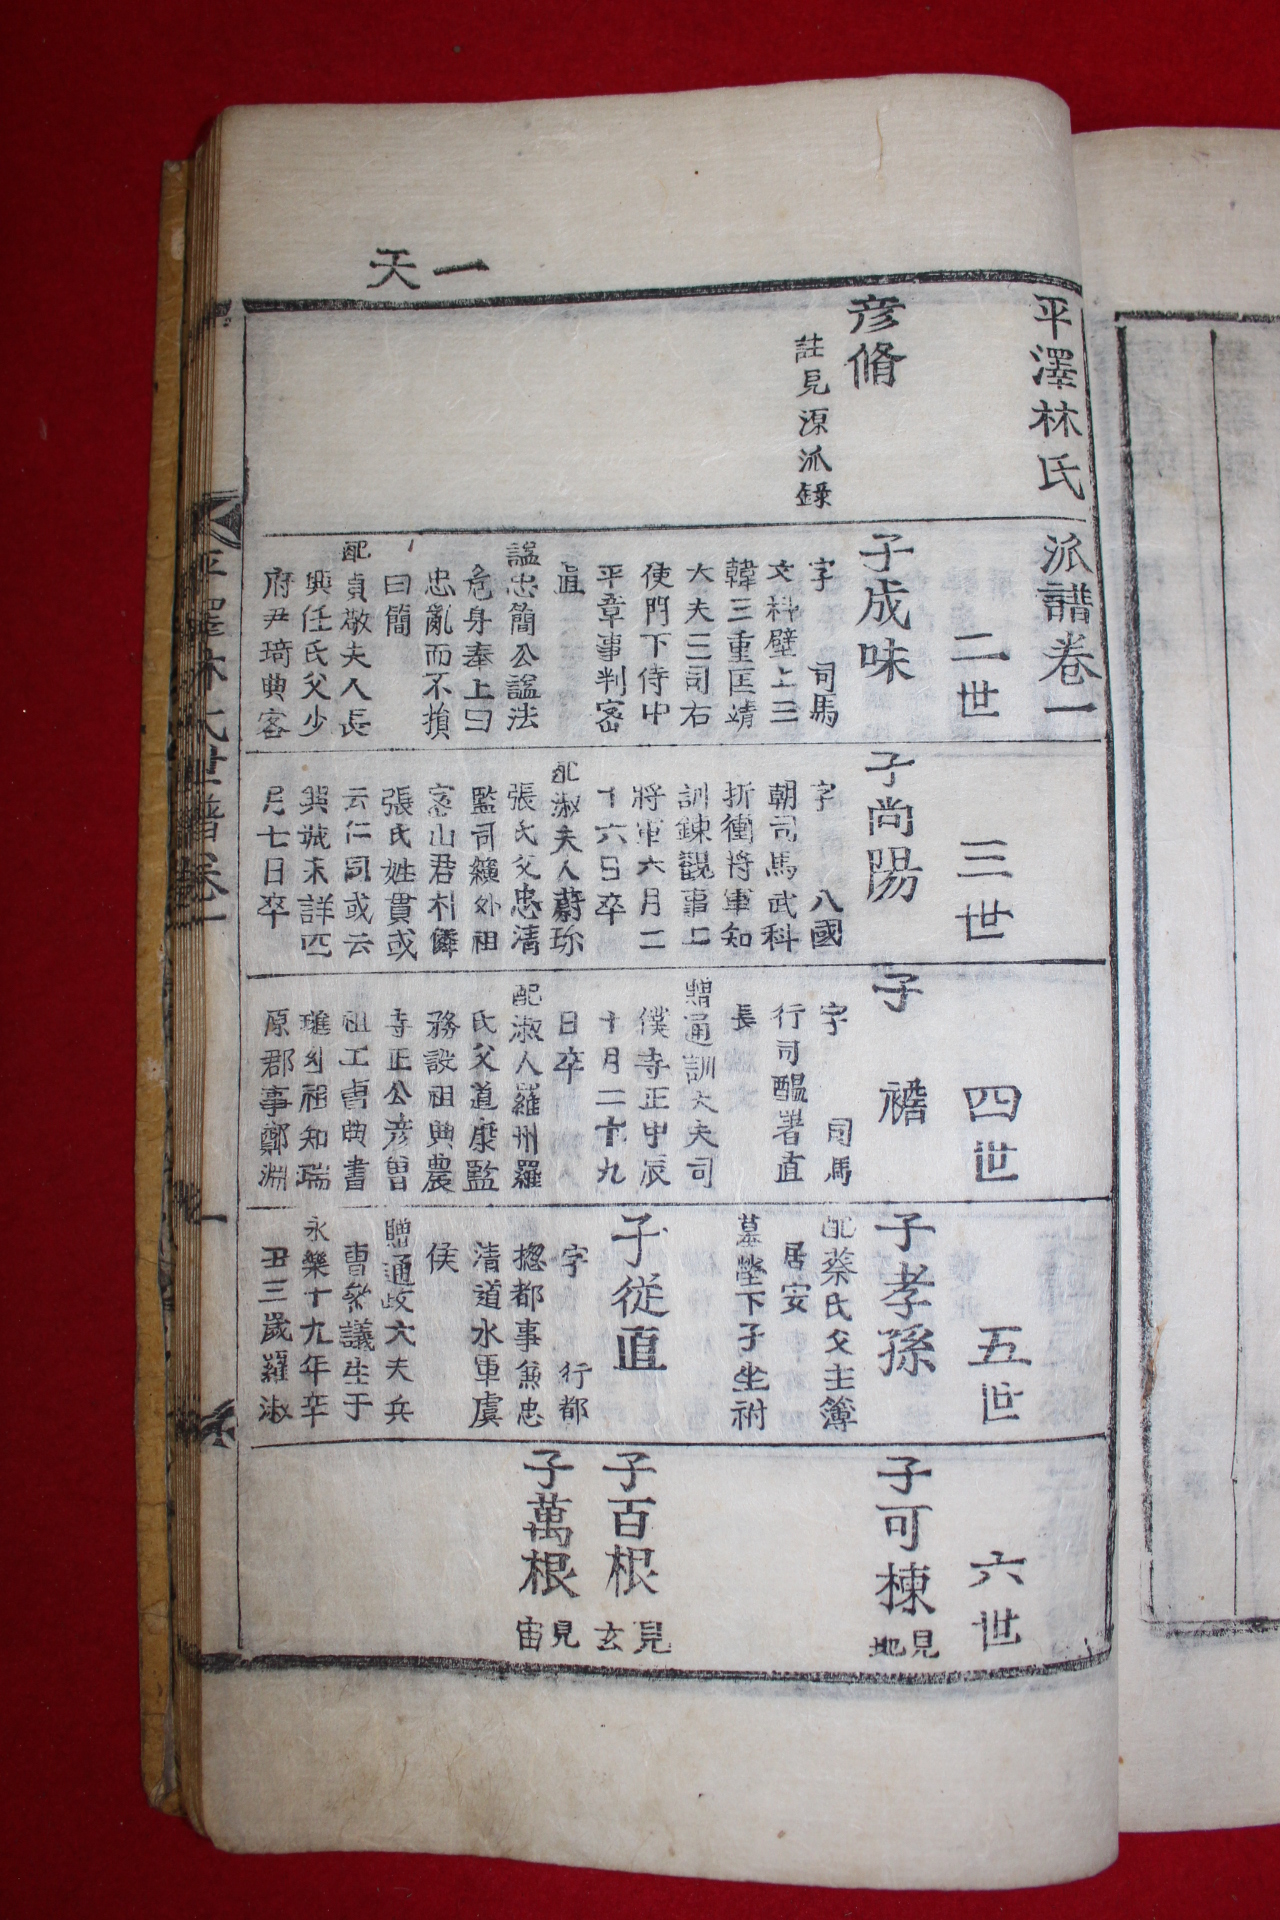 一天
平澤林氏派譜卷一
彦脩
註見源派錄
二世
子成味
字　　司馬
文科壁上三
韓三重匡靖
大夫三司右
使門下侍中
平章事判密
直
諡忠簡公諡法
危身奉上曰
忠亂而不損
曰簡
配貞敬夫人長
興任氏父少
府尹琦典客
三世
子尚陽
字　　八國
朝司馬武科
折衝將軍知
訓鍊觀事上
將軍六月二
十六日卒
配淑夫人蔚珍
張氏父忠淸
監司籲外祖
密山君朴僯
張氏姓貫或
云仁同或云
英城未詳四
月七日卒
四世
子　襜
字　　司馬
行司醞署直
長
贈通訓大夫司
僕寺正甲辰
十月二十九
日卒
配淑人羅州羅
氏父道康監
務設祖典農
寺正公彦曾
祖工曹典書
璡外祖知瑞
原郡事鄭淵
五世
子孝孫
配蔡氏父主簿
居安
墓瑩下子坐祔
子從直
字　　行都
摠都事兼忠
淸道水軍虞
侯
贈通政大夫兵
曹叅議生于
永樂十九年辛
丑三歲羅淑
六世
子可棟 見地
子百根 見玄
子萬根 見宙
平澤林氏世譜卷一
一